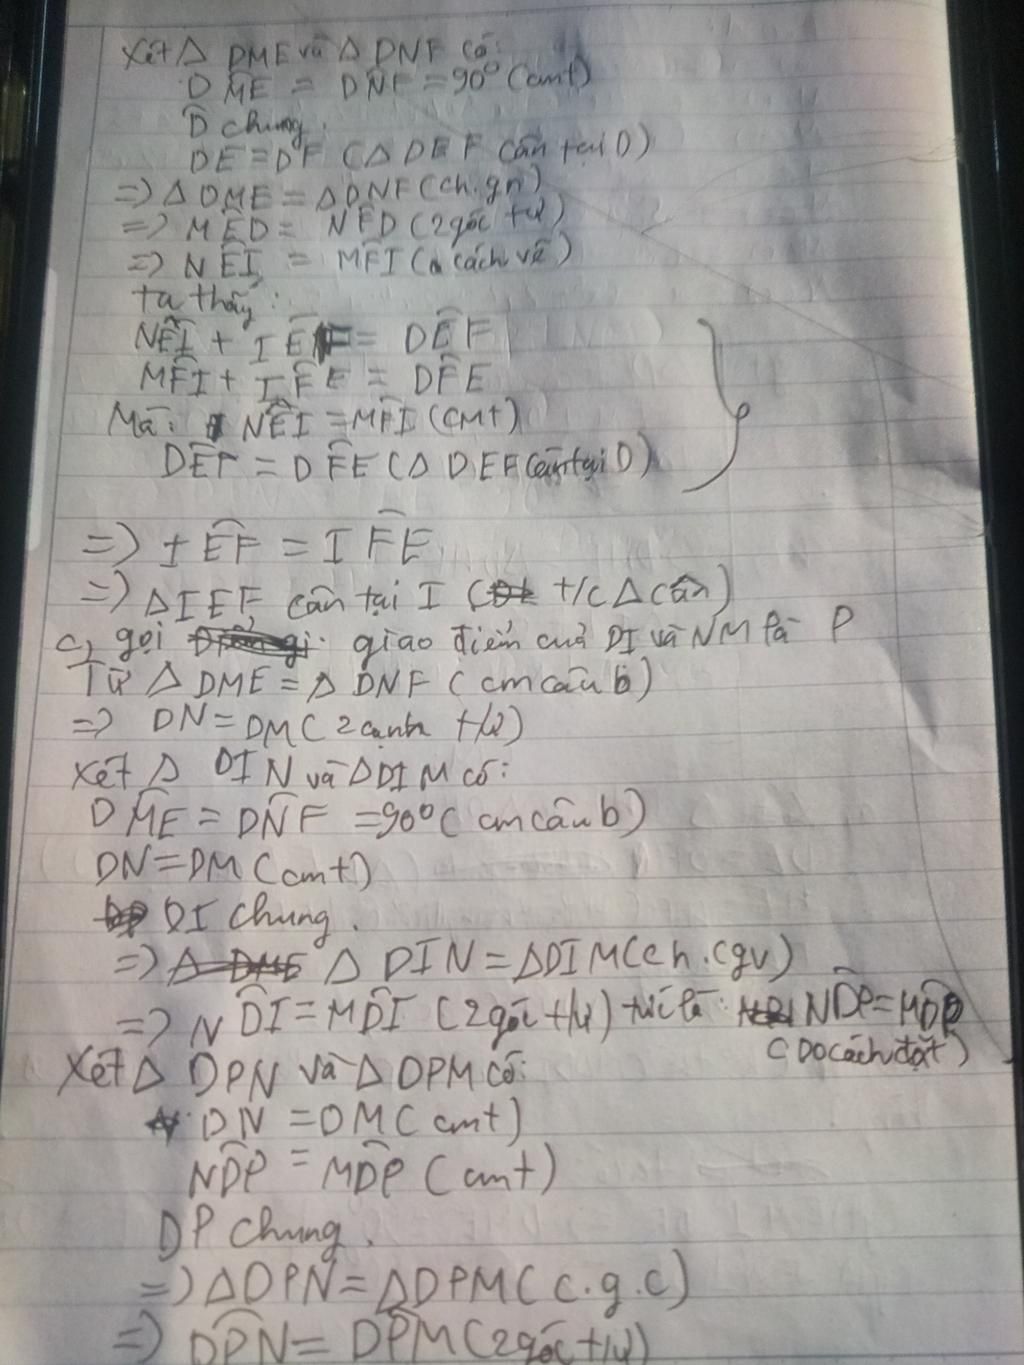 Xét △ DME và △ DNF có:
DM̂E = DN̂F = 90° (cmt)
D̂ chung.
DE = DF (△ DEF cân tại D)
=> △ DME = △DNF (ch.gn)
=> MÊD = NF̂D (2góc t/ư)
=> NÊI = MF̂I (cách vẽ)
ta thấy:
NÊI + IÊF = DÊF
MF̂I + IF̂E = DF̂E
Mà: NÊI = MF̂I (cmt)
DÊF = DF̂E (△ DEF cân tại D)
=> IÊF = IF̂E
=> △IEF cân tại I (t/c △ cân)
c, gọi giao điểm của DI và NM là P
Từ △ DME = △ DNF (cm câu b)
=> DN = DM (2 cạnh t/ư)
Xét △ DIN và △DIM có:
DM̂E = DN̂F = 90° (cm câu b)
DN = DM (cmt)
DI chung.
=> △ DIN = △DIM (ch.cgv)
=> ND̂I = MD̂I (2góc t/ư) tức là: ND̂P = MD̂P
(Do cách đặt)
Xét △ DPN và △ DPM có:
DN = DM (cmt)
ND̂P = MD̂P (cmt)
DP chung.
=> △DPN = △DPM (c.g.c)
=> DP̂N = DP̂M (2góc t/ư)